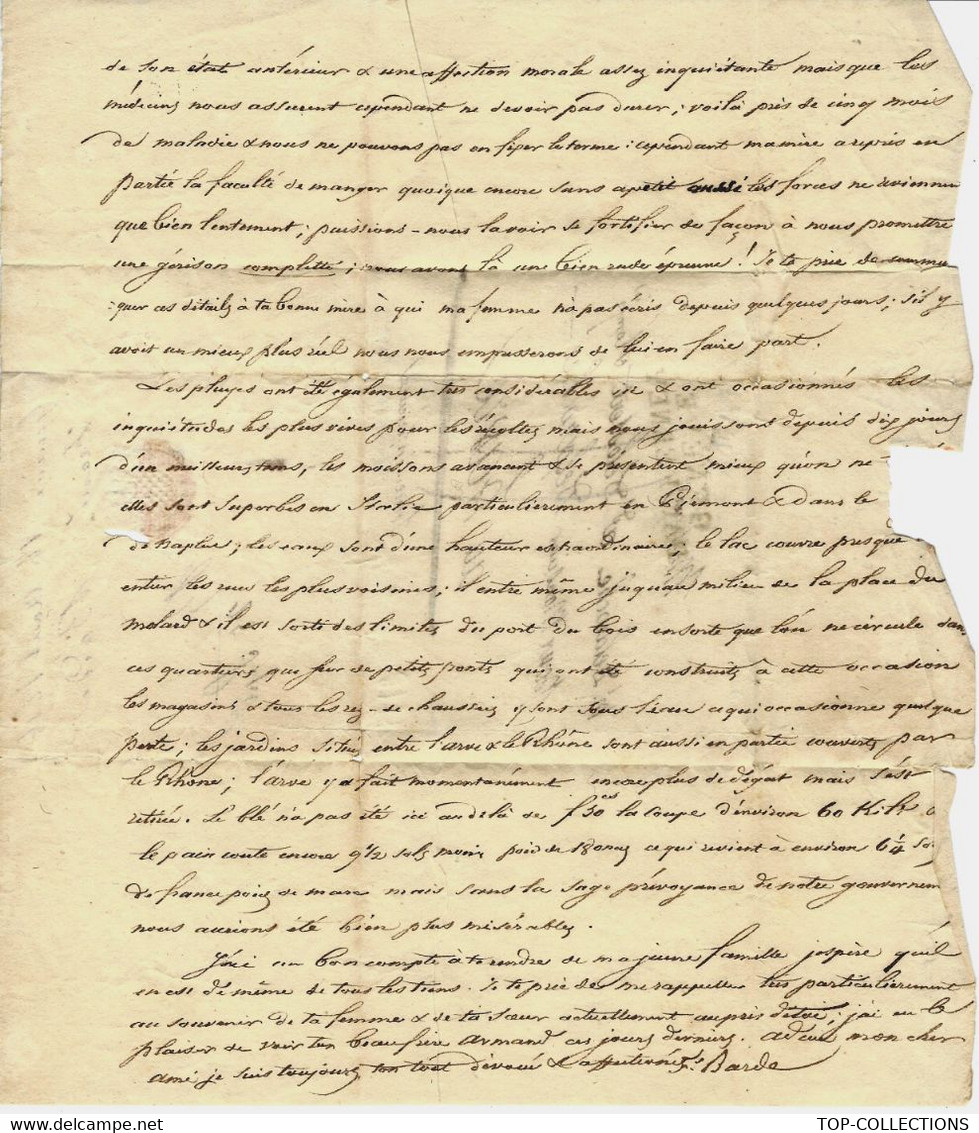 de son état antérieur & une affection morale assez inquiétante mais que les
médecins nous assurent cependant ne devoir pas durer; voilà près de cinq mois
de maladie & nous ne pouvons pas en fixer le terme: cependant ma mère a repris en
Partie la faculté de manger quoique encore sans apetit aussi les forces ne reviennen
que bien lentement; puissions-nous la voir se fortifier de façon à nous promettre
une gérison complette; nous avons là une bien rude épreuve! Je te prie de commu
:quer ces détails à ta bonne mère à qui ma femme n'a pas écris depuis quelques jours; s'il y
avoit un mieux plus réel nous nous empresserons de lui en faire part.
Les pluyes ont été également très considérables ici & ont occasionnés les
inquiétudes les plus vives pour les récoltes mais nous jouissons depuis dix jours
d'un meilleur tems, les moissons avancent & se présentent mieux qu'on ne
elles sont superbes en Italie particulierement en Piémont & dans le
de Naples; les eaux sont d'une hauteur extraordinaire; le lac couvre presque
entier les rues les plus voisines; il entre même jusqu'au milieu de la place du
Molard & il est sorti des limites du port du Bois ensorte que l'on ne circule dan
ces quartiers que sur de petits ponts qui ont été construits à cette occasion
les magasins & tous les rez-de chaussées y sont sous l'eau ce qui occasionne quelque
perte; les jardins situés entre l'arve & le Rhône sont aussi en partie couverts par
le Rhône; l'arve y a fait momentanément encore plus de dégat mais s'est
retirée. Le blé n'a pas été ici au delà de f 50 la coupe d'environ 60 Kil
le pain coute encore 9 1/2 sols moins poid de 18 onces ce qui revient à environ 6 1/4 so
de france poids de marc mais sans la sage prévoyance de notre gouvernem
nous aurions été bien plus misérables.
J'ai un bon compte à te rendre de ma jeune famille j'espère qu'il
en est de même de tous les tiens. Je te prie de me rappeller très particulièrement
au souvenir de ta femme & de ta sœur actuellement auprès d'elle; j'ai eu le
plaisir de voir ton beau frère Armand ces jours derniers. adieu mon cher
ami je suis toujours ton tout dévoué & affectionné Barde
TOP-COLLECTIONS